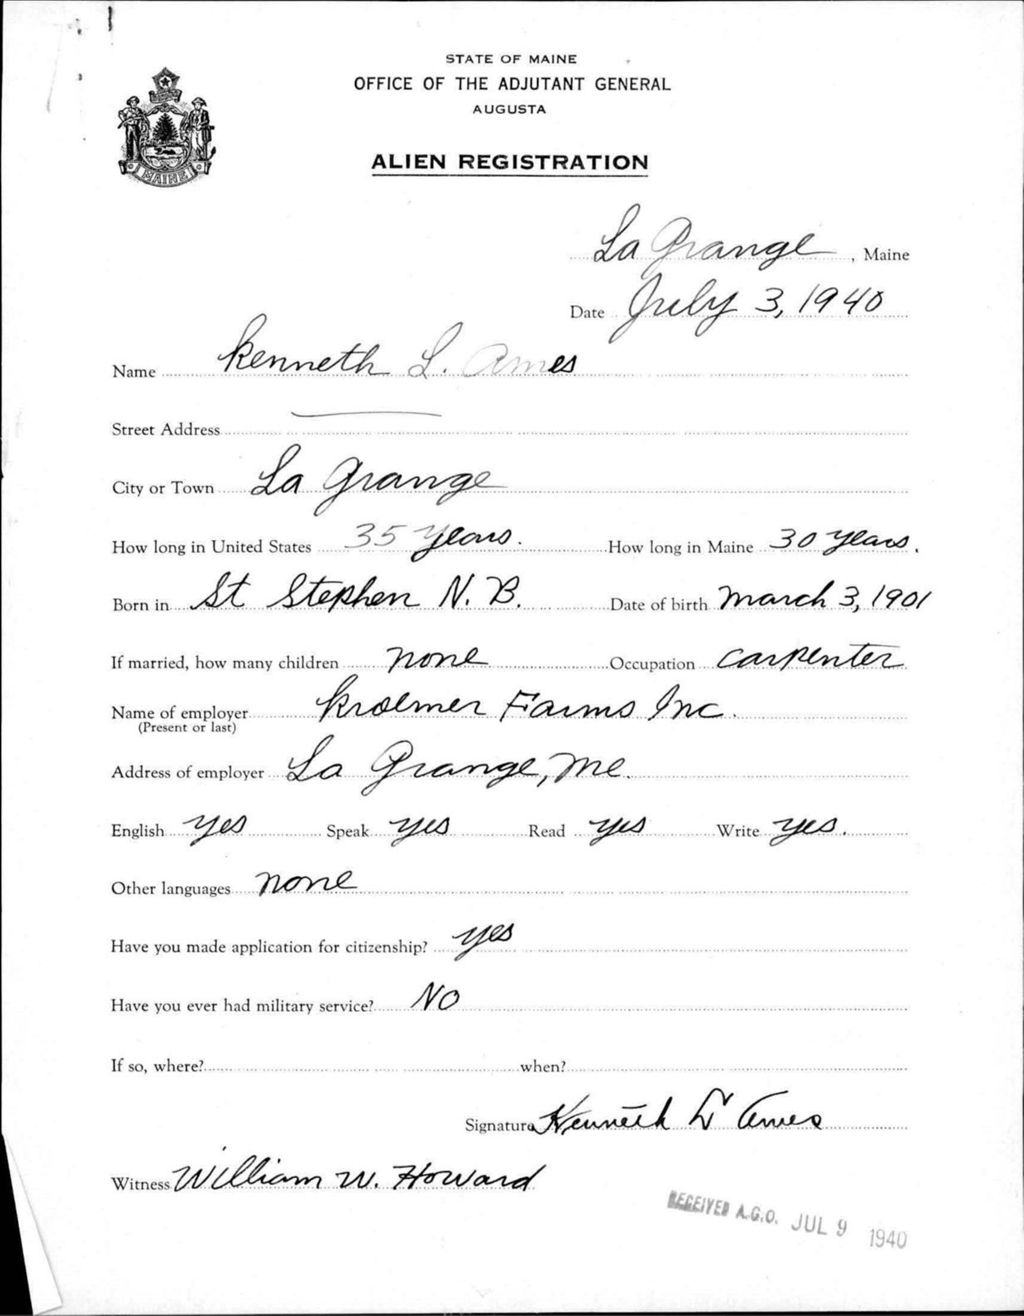 STATE OF MAINE
OFFICE OF THE ADJUTANT GENERAL
AUGUSTA
ALIEN REGISTRATION
MAINE
La Grange, Maine
Date July 3, 1940
Name Kenneth L. Ames
Street Address
City or Town La Grange
How long in United States 35 years. How long in Maine 30 years.
Born in St Stephen N. B. Date of birth March 3, 1901
If married, how many children none Occupation carpenter
Name of employer Kroemer Farms Inc.
(Present or last)
Address of employer La Grange, Me.
English yes Speak yes Read yes Write yes.
Other languages none
Have you made application for citizenship? yes
Have you ever had military service? No
If so, where? when?
Signature Kenneth L Ames
Witness William W. Howard
RECEIVED A.G.O. JUL 9 1940